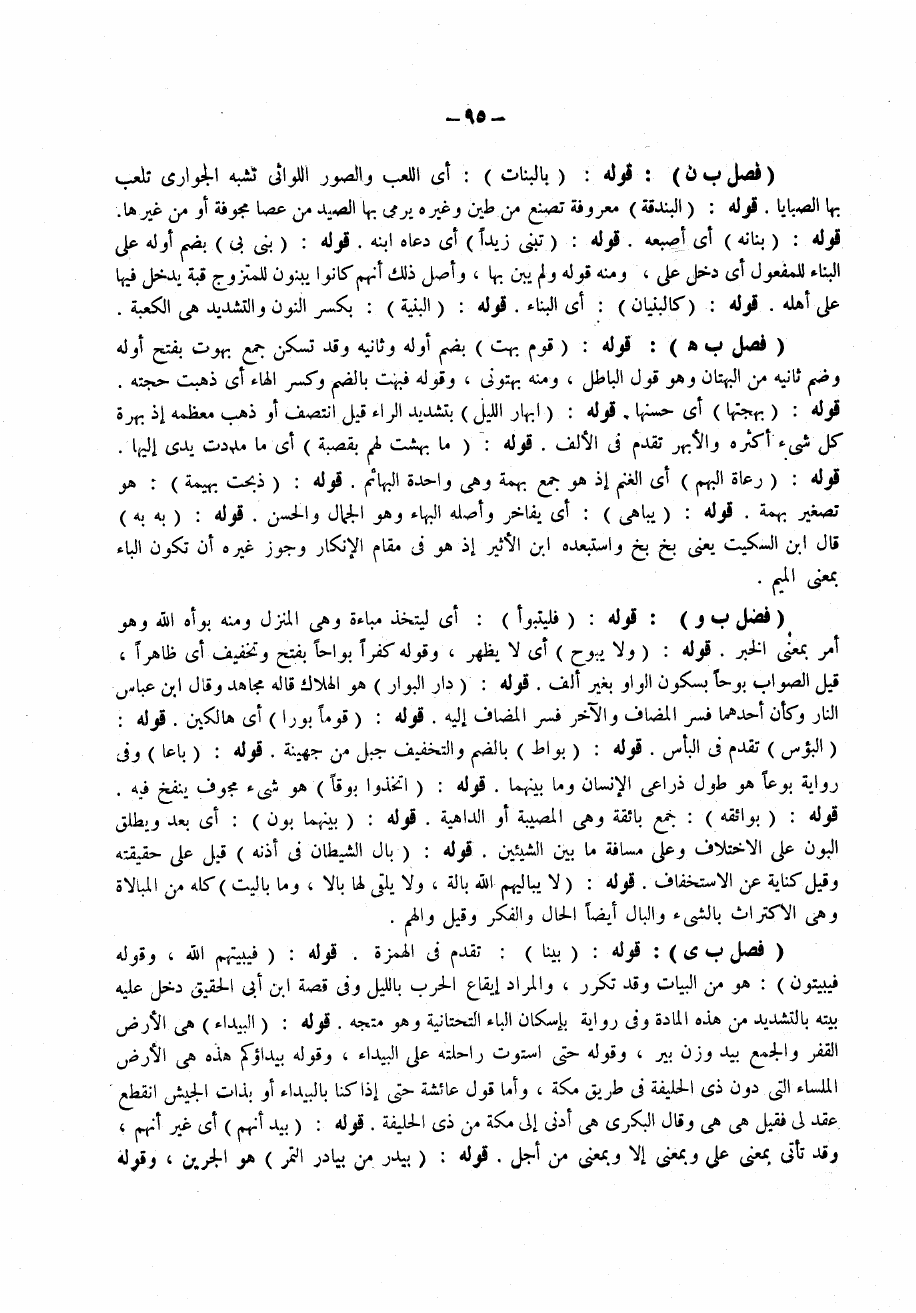 – ٩٥ –
( فصل ب ن ) : قوله : ( بالبنات ) : أى اللعب والصور اللواتى تشبه الجوارى تلعب
بها الصبايا . قوله : ( البندقة ) معروفة تصنع من طين وغيره يرمى بها الصيد من عصا مجوفة أو من غيرها.
قوله : ( بنانه ) أى أصبعه . قوله : ( تبنى زيداً ) أى دعاه ابنه . قوله : ( بنى بى ) بضم أوله على
البناء للمفعول أى دخل على ، ومنه قوله ولم يبن بها ، وأصل ذلك أنهم كانوا يبنون للمتزوج قبة يدخل فيها
على أهله . قوله : ( كالبنيان ) : أى البناء . قوله : ( البنية ) : بكسر النون والتشديد هى الكعبة .
( فصل ب ه ) : قوله : ( قوم بهت ) بضم أوله وثانيه وقد تسكن جمع بهوت بفتح أوله
وضم ثانيه من البهتان وهو قول الباطل ، ومنه بهتونى ، وقوله فبهت بالضم وكسر الهاء أى ذهبت حجته .
قوله : ( بهجتها ) أى حسنها . قوله : ( ابهار الليل ) بتشديد الراء قيل انتصف أو ذهب معظمه إذ بهرة
كل شىء أكثره والأبهر تقدم فى الألف . قوله : ( ما بهشت لهم بقصبة ) أى ما مددت يدى إليها .
قوله : ( رعاة البهم ) أى الغنم إذ هو جمع بهمة وهى واحدة البهائم . قوله : ( ذبحت بهيمة ) : هو
تصغير بهمة . قوله : ( يباهى ) : أى يفاخر وأصله البهاء وهو الجمال والحسن . قوله : ( به به )
قال ابن السكيت يعنى بخ بخ واستبعده ابن الأثير إذ هو فى مقام الإنكار وجوز غيره أن تكون الباء
بمعنى الميم .
( فضل ب و ) : قوله : ( فليتبوأ ) : أى ليتخذ مباءة وهى المنزل ومنه بوأه الله وهو
أمر بمعنى الخبر . قوله : ( ولا يبوح ) أى لا يظهر ، وقوله كفراً بواحاً بفتح وتخفيف أى ظاهراً ،
قيل الصواب بوحاً بسكون الواو بغير ألف . قوله : ( دار البوار ) هو الهلاك قاله مجاهد وقال ابن عباس
النار وكأن أحدهما فسر المضاف والآخر فسر المضاف إليه . قوله : ( قوماً بورا ) أى هالكين . قوله :
( البؤس ) تقدم فى البأس . قوله : ( بواط ) بالضم والتخفيف جبل من جهينة . قوله : ( باعا ) وفى
رواية بوعاً هو طول ذراعى الإنسان وما بينهما . قوله : ( اتخذوا بوقاً ) هو شىء مجوف ينفخ فيه .
قوله : ( بوائقه ) : جمع بائقة وهى المصيبة أو الداهية . قوله : ( بينهما بون ) : أى بعد ويطلق
البون على الاختلاف وعلى مسافة ما بين الشيئين . قوله : ( بال الشيطان فى أذنه ) قيل على حقيقته
وقيل كناية عن الاستخفاف . قوله : ( لا يباليهم الله بالة ، ولا يلقى لها بالا ، وما باليت ) كله من المبالاة
وهى الاكتراث بالشىء والبال أيضاً الحال والفكر وقيل والهم .
( فصل ب ى ) : قوله : ( بينا ) : تقدم فى الهمزة . قوله : ( فيبيتهم الله ، وقوله
فيبيتون ) : هو من البيات وقد تكرر ، والمراد إيقاع الحرب بالليل وفى قصة ابن أبى الحقيق دخل عليه
بيته بالتشديد من هذه المادة وفى رواية بإسكان الياء التحتانية وهو متجه . قوله : ( البيداء ) هى الأرض
القفر والجمع بيد وزن بير ، وقوله حتى استوت راحلته على البيداء ، وقوله بيداؤكم هذه هى الأرض
الملساء التى دون ذى الحليفة فى طريق مكة ، وأما قول عائشة حتى إذا كنا بالبيداء أو بذات الجيش انقطع
عقد لى فقيل هى هى وقال البكرى هى أدنى إلى مكة من ذى الحليفة . قوله : ( بيد أنهم ) أى غير أنهم ،
وقد تأتى بمعنى على وبمعنى إلا وبمعنى من أجل . قوله : ( بيدر من بيادر التمر ) هو الجرين ، وقوله